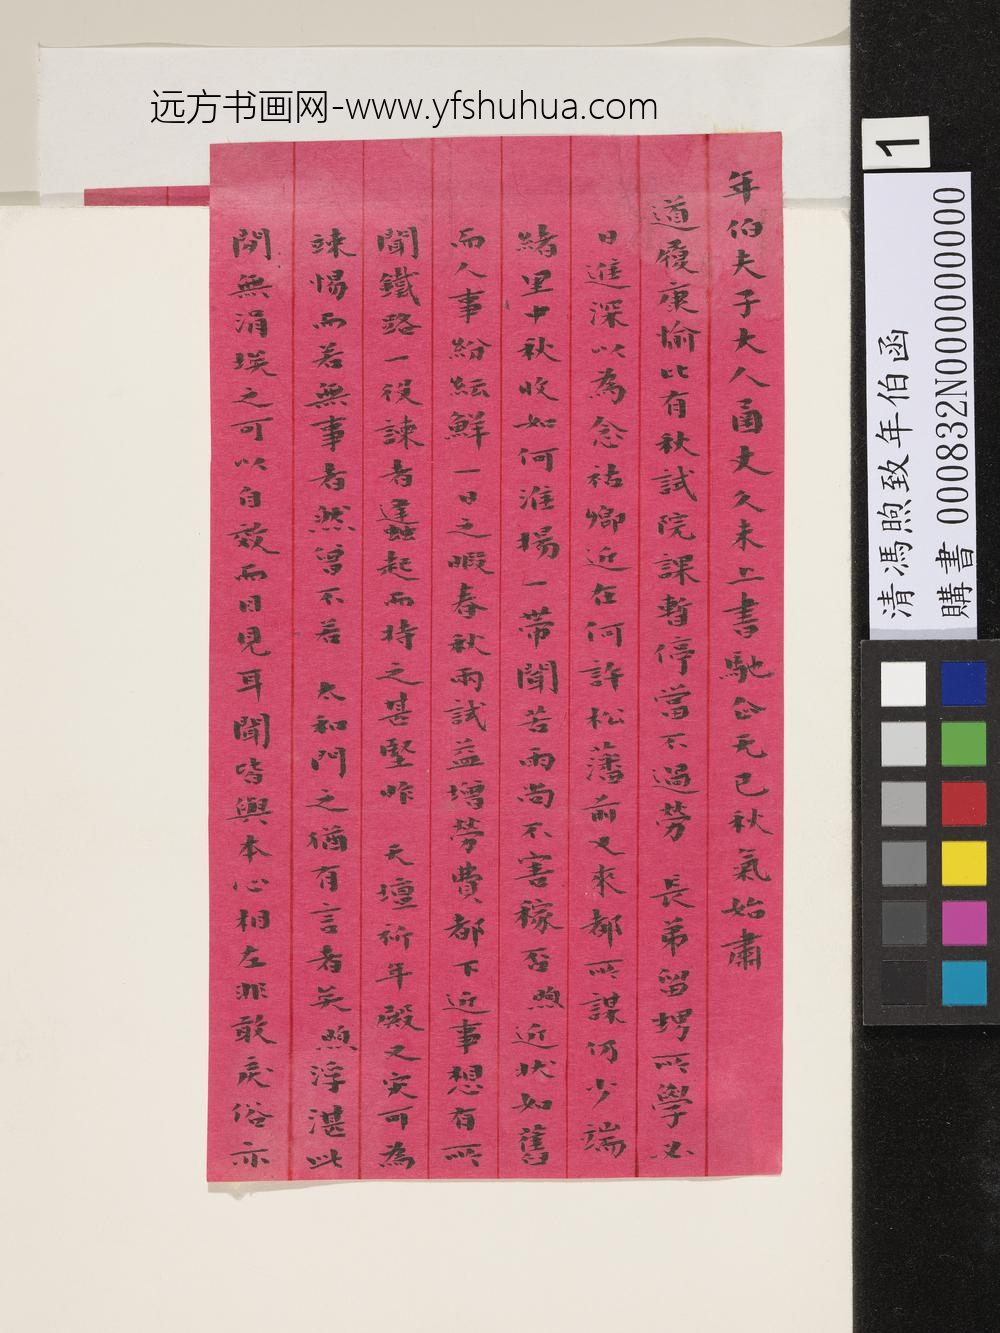 远方书画网-www.yfshuhua.com
年伯夫子大人函丈久未上書馳企无已秋氣始肅
道履康愉比有秋試院課暫停當不過勞 長弟留堺所學必
日進深以為念祜卿近在何許松藩前又來都所謀何少端
緒里中秋收如何淮揚一帶聞苦雨尚不害稼否煦近狀如舊
而人事紛紜鮮一日之暇春秋兩試益增勞費都下近事想有所
聞鐵路一役諫者蠭起而持之甚堅昨 天壇祈年殿又灾可為
竦惕而若無事者然曾不若 太和門之猶有言者矣煦浮湛此
閒無涓埃之可以自效而目見耳聞皆與本心相左非敢戾俗亦
1
清馮煦致年伯函
購書 000832N000000000